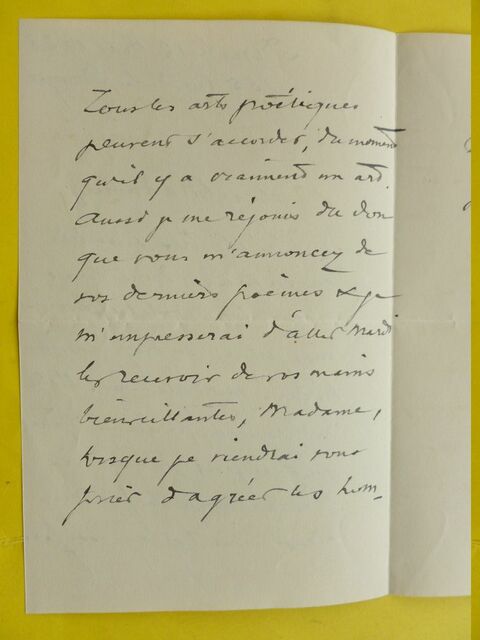 Tous les arts poétiques
peuvent s'accorder, du moment
qu'il y a vraiment un art.
Aussi je me réjouis du don
que vous m'annoncez de
vos derniers poèmes & je
m'empresserai d'aller Mardi
les recevoir de vos mains
bienveillantes, Madame,
lorsque je viendrai vous
prier d'agréer les hom-